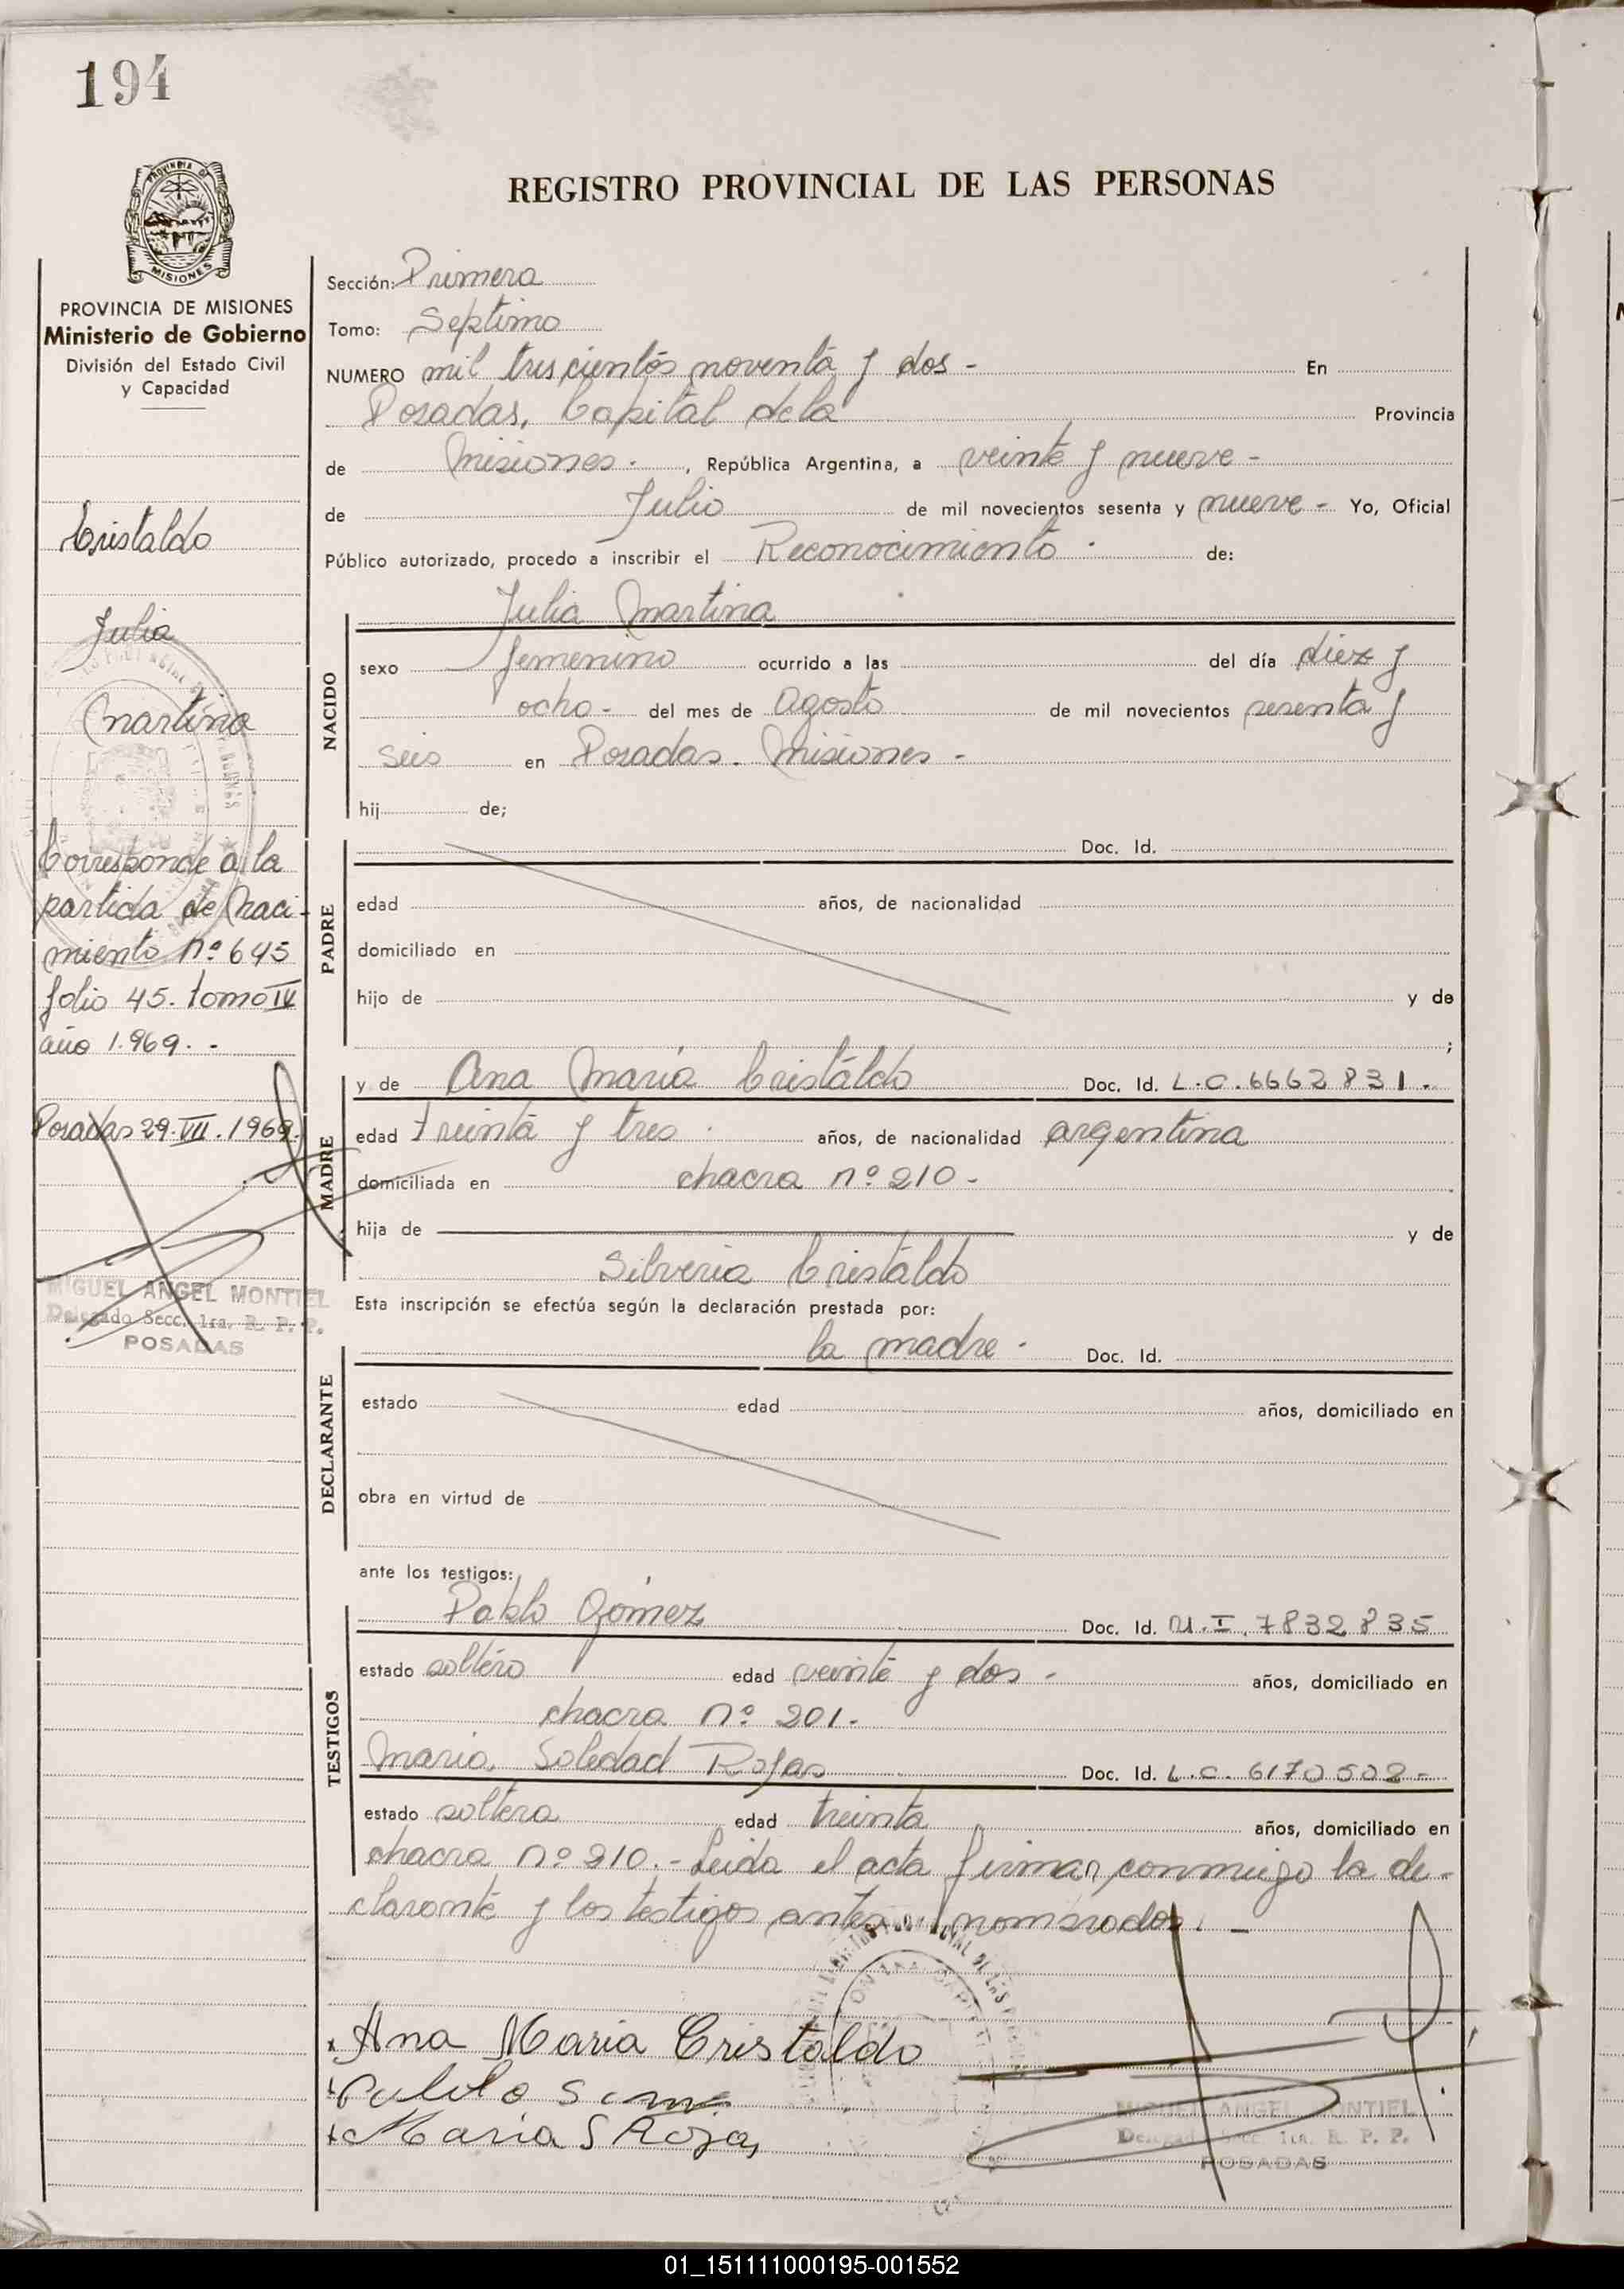 194
PROVINCIA DE MISIONES
Ministerio de Gobierno
División del Estado Civil
y Capacidad
Cristaldo
Julia
Martina
Corresponde a la
partida de Naci-
miento nº 645
folio 45. tomo IV
año 1.969. -
Posadas 29.VII.1969.
MIGUEL ANGEL MONTIEL
Delegado Secc. 1ra. R. P. P.
POSADAS
REGISTRO PROVINCIAL DE LAS PERSONAS
Sección: Primera
Tomo: Septimo
NUMERO mil trescientos noventa y dos - En
Posadas, Capital de la Provincia
de Misiones. , República Argentina, a veinte y nueve -
de Julio de mil novecientos sesenta y nueve - Yo, Oficial
Público autorizado, procedo a inscribir el Reconocimiento . de:
NACIDO
Julia Martina
sexo femenino ocurrido a las del día diez y
ocho - del mes de Agosto de mil novecientos sesenta y
seis en Posadas. Misiones -
hij de;
PADRE
Doc. Id.
edad años, de nacionalidad
domiciliado en
hijo de y de
;
MADRE
y de Ana María Cristaldo Doc. Id. L.C. 6662831.
edad treinta y tres . años, de nacionalidad argentina
domiciliada en chacra nº 210 -
hija de y de
Silveria Cristaldo
Esta inscripción se efectúa según la declaración prestada por:
DECLARANTE
la madre . Doc. Id.
estado edad años, domiciliado en
obra en virtud de
ante los testigos:
TESTIGOS
Pablo Gómez Doc. Id. M.I. 7832835
estado soltero edad veinte y dos - años, domiciliado en
chacra nº 201.
Maria Soledad Rojas Doc. Id. L.C. 6170502-
estado soltera edad treinta años, domiciliado en
chacra nº 210.- Leida el acta firman conmigo la de-
clarante y los testigos antes nombrados. -
Ana Maria Cristaldo
Maria S Rojas
MIGUEL ANGEL MONTIEL
Delegado Secc. 1ra. R. P. P.
POSADAS
01_151111000195-001552